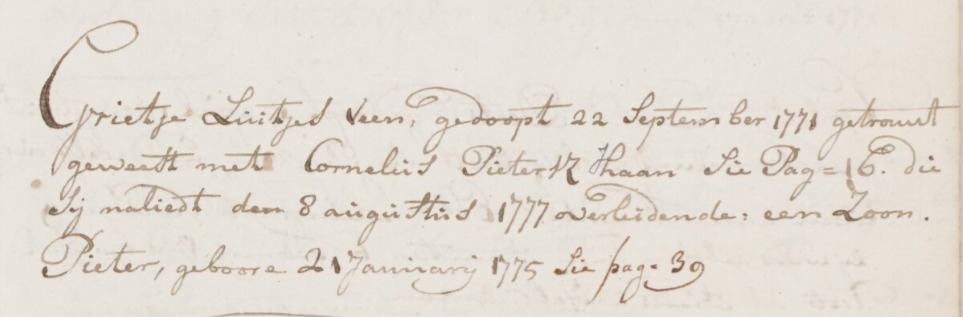 Grietje Luitjes Veen, gedoopt 22 September 1771 getrouwt
geweest met Cornelis Pieter Haan Sie Pag= 16. die
Sij naliedt den 8 augustus 1777 overleidende: een Zoon.
Pieter, geboore 21 Januarij 1775 Sie pag= 39